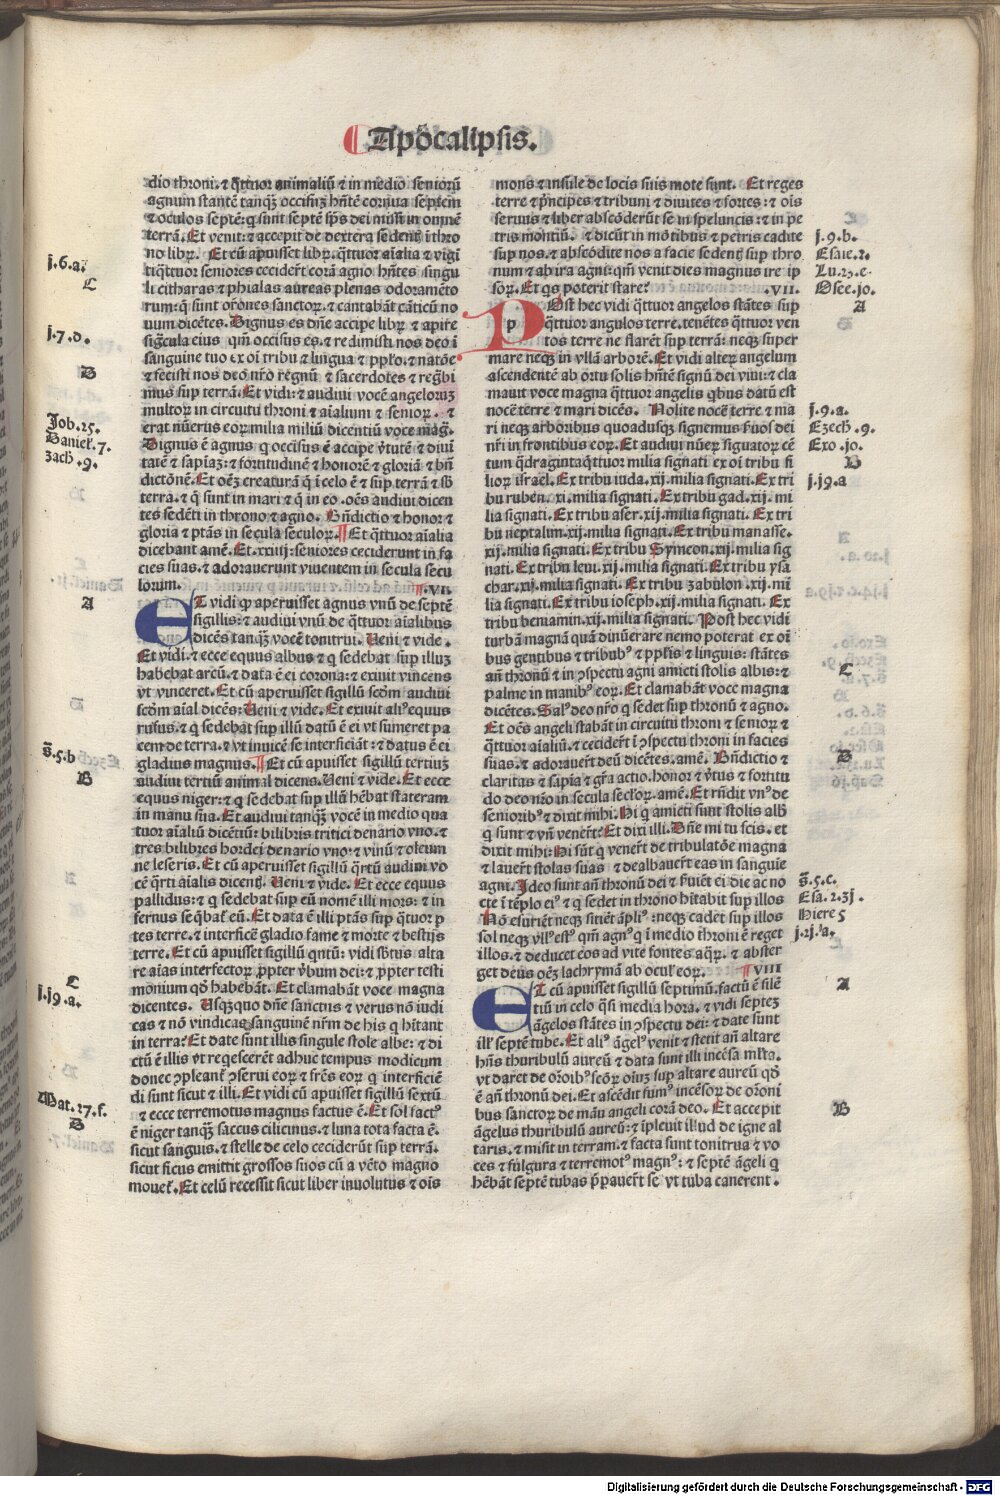 Apocalipsis.
dio throni. ⁊ q̃ttuor animaliũ ⁊ in medio seniorũ
agnum stantẽ tanq̃ occisuʒ hñtẽ cornua septem
⁊ oculos septẽ: q̃ sunt septẽ sp̃s dei missi in omnẽ
terrã. Et venit: ⁊ accepit de dextera sedent̃ ĩ thro
no libꝝ. Et cũ apuisset libꝝ. q̃ttuor aĩalia ⁊ vigĩ
tiq̃ttuor seniores cecidert̃ corã agno hñtes singu
li citharas ⁊ phialas aureas plenas odoramẽto
rum: q̃ sunt or̃ones sanctoꝝ. ⁊ cantabãt cãticũ no
uum dicẽtes. Dignus es dñe accipe libꝝ ⁊ apire
sig̃cula eius qm̃ occisus es. ⁊ redimisti nos deo ĩ
sanguine tuo ex oĩ tribu ⁊ lingua ⁊ pp̃lo. ⁊ natõe
⁊ fecisti nos deo nr̃o regnũ ⁊ sacerdotes ⁊ reg̃bi
mus sup terrã. Et vidi: ⁊ audiui vocẽ angeloruʒ
multoꝝ in circuitu throni ⁊ aĩalium ⁊ senioꝝ. ⁊
erat nũerus eoꝝ milia miliũ dicentiũ voce mag̃.
Dignus ẽ agnus q̃ occisus ẽ accipe v̾tutẽ ⁊ diui
tatẽ ⁊ sapĩaʒ: ⁊ fortitudinẽ ⁊ honorẽ ⁊ gloriã ⁊ bñ
dictõnẽ. Et oẽʒ creaturã q̃ ĩ celo ẽ ⁊ sup terrã ⁊ sb̾
terra. ⁊ q̃ sunt in mari ⁊ q̃ in eo. oẽs audiui dicen
tes sedẽti in throno ⁊ agno. Bñdictio ⁊ honor ⁊
gloria ⁊ ptãs in secula seculoꝝ. ¶ Et q̃ttuor aĩalia
dicebant amẽ. Et .xxiiij. seniores ceciderunt in fa
cies suas. ⁊ adorauerunt viuentem in secula secu
lorum. ¶.VI.
ET vidi ꝙ aperuisset agnus vnũ de septẽ
sigillis: ⁊ audiui vnũ de q̃ttuor aĩalibus
dicẽs tanq̃ʒ vocẽ tonitrui. Ueni ⁊ vide.
Et vidi. ⁊ ecce equus albus ⁊ q̃ sedebat sup illuʒ
habebat arcũ. ⁊ data ẽ ei corona: ⁊ exiuit vincens
vt vinceret. Et cũ aperuisset sigillũ scõm audiui
scõm aĩal dicẽs: Ueni ⁊ vide. Et exiuit aliꝰ equus
rufus. ⁊ q̃ sedebat sup illũ datũ ẽ ei vt sumeret pa
cem de terra. ⁊ vt inuicẽ se interficiãt: ⁊ datus ẽ ei
gladius magnus. ¶ Et cũ apuisset sigillũ tertiuʒ
audiui tertiũ animal dicens. Ueni ⁊ vide. Et ecce
equus niger: ⁊ q̃ sedebat sup illũ hẽbat stateram
in manu sua. Et audiui tanq̃ʒ vocẽ in medio qua
tuor aĩaliũ dicẽtiũ: bilibris tritici denario vno. ⁊
tres bilibres hordei denario vno: ⁊ vinũ ⁊ oleum
ne leseris. Et cũ aperuisset sigillũ q̃rtũ audiui vo
cẽ q̃rti aĩalis dicent̃. Ueni ⁊ vide. Et ecce equus
pallidus: ⁊ q̃ sedebat sup eũ nomẽ illi mors: ⁊ in
fernus seq̃bat̃ eũ. Et data ẽ illi ptãs sup q̃tuor p
tes terre. ⁊ interficẽ gladio fame ⁊ morte ⁊ bestijs
terre. Et cũ apuisset sigillũ qntũ: vidi sb̾tus alta
re aĩas interfectoꝝ ꝓpter v̾bum dei: ⁊ ꝓpter testi
monium qd̃ habebãt. Et clamabãt voce magna
dicentes. Usq̃quo dñe sanctus ⁊ verus nõ iudi
cas ⁊ nõ vindicas sanguinẽ nr̃m de his q̃ hĩtant
in terra? Et date sunt illis singule stole albe: ⁊ di
ctũ ẽ illis vt reqescerẽt adhuc tempus modicum
donec ꝯpleant̃ ꝯserui eoꝝ ⁊ frẽs eoꝝ q̃ interficiẽ
di sunt sicut ⁊ illi. Et vidi cũ apuisset sigillũ sextũ
⁊ ecce terremotus magnus factus ẽ. Et sol factꝰ
ẽ niger tanq̃ʒ saccus cilicinus. ⁊ luna tota facta ẽ.
sicut sanguis. ⁊ stelle de celo ceciderũt sup terrã.
sicut ficus emittit grossos suos cũ a vẽto magno
mouet̃. Et celũ recessit sicut liber inuolutus ⁊ oĩs
j.6.a.
C
j.7.d.
D
Job.25.
Daniel̃.7.
Zach̃.9.
A
s̃.5.b
B
C
j.19.a.
Mat.27.f.
D
mons ⁊ insule de locis suis mote sunt. Et reges
terre ⁊ p̃ncipes ⁊ tribuni ⁊ diuites ⁊ fortes: ⁊ oĩs
seruus ⁊ liber abscõderũt se in speluncis: ⁊ in pe
tris montiũ. ⁊ dicũt in mõtibus ⁊ petris cadite
sup nos. ⁊ abscõdite nos a facie sedent̃ sup thro
num ⁊ ab ira agni: qm̃ venit dies magnus ire ip
soꝝ. Et qs poterit stare? .VII.
POst hec vidi q̃ttuor angelos stãtes sup
q̃ttuor angulos terre. tenẽtes q̃ttuor ven
tos terre ne flarẽt sup terrã: neqʒ super
mare neqʒ in vllã arborẽ. Et vidi alteꝝ angelum
ascendentẽ ab ortu solis hñtẽ signũ dei viui: ⁊ cla
mauit voce magna q̃ttuor angelis qbus datũ est
nocẽ terre ⁊ mari dicẽs. Nolite nocẽ terre ⁊ ma
ri neqʒ arboribus quoadusqʒ signemus s̾uos dei
nr̃i in frontibus eoꝝ. Et audiui nũeꝝ siguatoꝝ cẽ
tum q̃draginta q̃ttuor milia signati ex oĩ tribu fi
lioꝝ israel. Ex tribu iuda .xij. milia signati. Ex tri
bu ruben. xi. milia signati. Ex tribu gad. xij. mi
lia signati. Ex tribu aser. xij. milia signati. Ex tri
bu neptalim. xij. milia signati. Ex tribu manasse.
xij. milia signati. Ex tribu Symeon. xij. milia sig
nati. Ex tribu leui. xij. milia signati. Ex tribu ysa
char. xij. milia signati. Ex tribu zabulon. xij. mi
lia signati. Ex tribu ioseph. xij. milia signati. Ex
tribu beniamin. xij. milia signati. Post hec vidi
turbã magnã quã dinũerare nemo poterat ex oĩ
bus gentibus ⁊ tribubꝰ ⁊ pp̃lis ⁊ linguis: stãtes
añ thronũ ⁊ in ꝯspectu agni amicti stolis albis: ⁊
palme in manibꝰ eoꝝ. Et clamabãt voce magna
dicẽtes. Salꝰ deo nr̃o q̃ sedet sup thronũ ⁊ agno.
Et oẽs angeli stabãt in circuitu throni ⁊ senioꝝ ⁊
q̃ttuor aĩaliũ. ⁊ cecidert̃ ĩ ꝯspectu throni in facies
suas. ⁊ adorauert̃ deũ dicẽtes. amẽ. Bñdictio ⁊
claritas ⁊ sapĩa ⁊ gr̃a actio. honor ⁊ v̾tus ⁊ fortitu
do deo nr̃o in secula sec̃loꝝ. amẽ. Et rñdit vnꝰ de
seniorib̾ ⁊ dixit mihi. Hi q̃ amicti sunt stolis alb̾
q̃ sunt ⁊ vñ venert̃? Et dixi illi. Dñe mi tu scis. et
dixit mihi: Hi sũt q̃ venert̃ de tribulatõe magna
⁊ lauert̃ stolas suas ⁊ dealbauert̃ eas in sanguie
agni. Ideo sunt añ thronũ dei ⁊ s̾uiẽt ei die ac no
cte ĩ tẽplo eiꝰ ⁊ q̃ sedet in throno hĩtabit sup illos
Nõ esuriẽt neqʒ sitiẽt ãpliꝰ: neqʒ cadet sup illos
sol neqʒ vllꝰ estꝰ qm̃ agnꝰ q̃ ĩ medio throni ẽ reget
illos. ⁊ deducet eos ad vite fontes aq̃ꝝ. ⁊ abster
get deus oẽʒ lachrymã ab ocul̃ eoꝝ. ¶ VIII
ET cũ apuisset sigillũ septimũ. factũ ẽ silẽ
tiũ in celo q̃si media hora. ⁊ vidi septeʒ
ãgelos stãtes in ꝯspectu dei: ⁊ date sunt
ill̃ septẽ tube. Et aliꝰ ãgelꝰ venit ⁊ stetit añ altare
hñs thuribulũ aureũ ⁊ data sunt illi incẽsa ml̃ta.
vt daret de or̃oibꝰ sc̃oꝝ oĩuʒ sup altare aureũ qd̃
ẽ añ thronũ dei. Et ascẽdit fumꝰ incẽsoꝝ de or̃oni
bus sanctoꝝ de mãu angeli corã deo. Et accepit
ãgelus thuribulũ aureũ: ⁊ ĩpleuit illud de igne al
taris. ⁊ misit in terram. ⁊ facta sunt tonitrua ⁊ vo
ces ⁊ fulgura ⁊ terremotꝰ magnꝰ: ⁊ septẽ ãgeli q̃
hẽbãt septẽ tubas p̃pauert̃ se vt tuba canerent.
j.9.b.
Esaie.2.
Lu.23.e.
Osee.10.
A
j.9.a.
Ezech̃.9.
Exo.10.
B
j.19.a
C
D
s̃.5.c.
Esa.2.31.
Hiere 5
j.21.a.
A
B
Digitalisierung gefördert durch die Deutsche Forschungsgemeinschaft - DFG